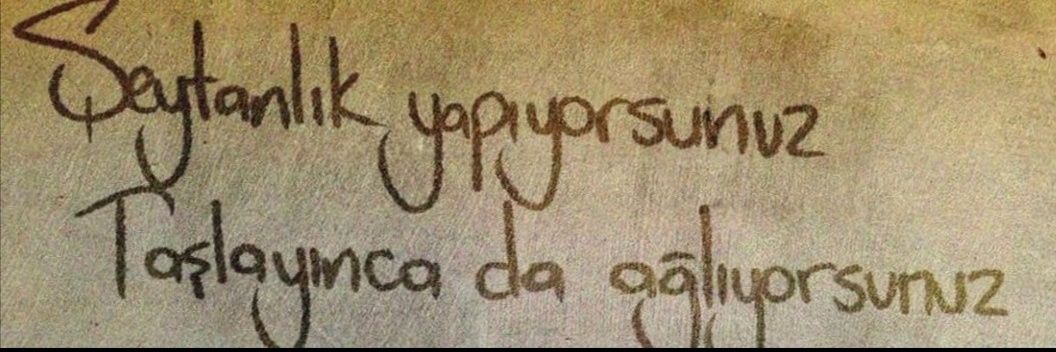 Şeytanlık yapıyorsunuz
Taşlayınca da ağlıyorsunuz